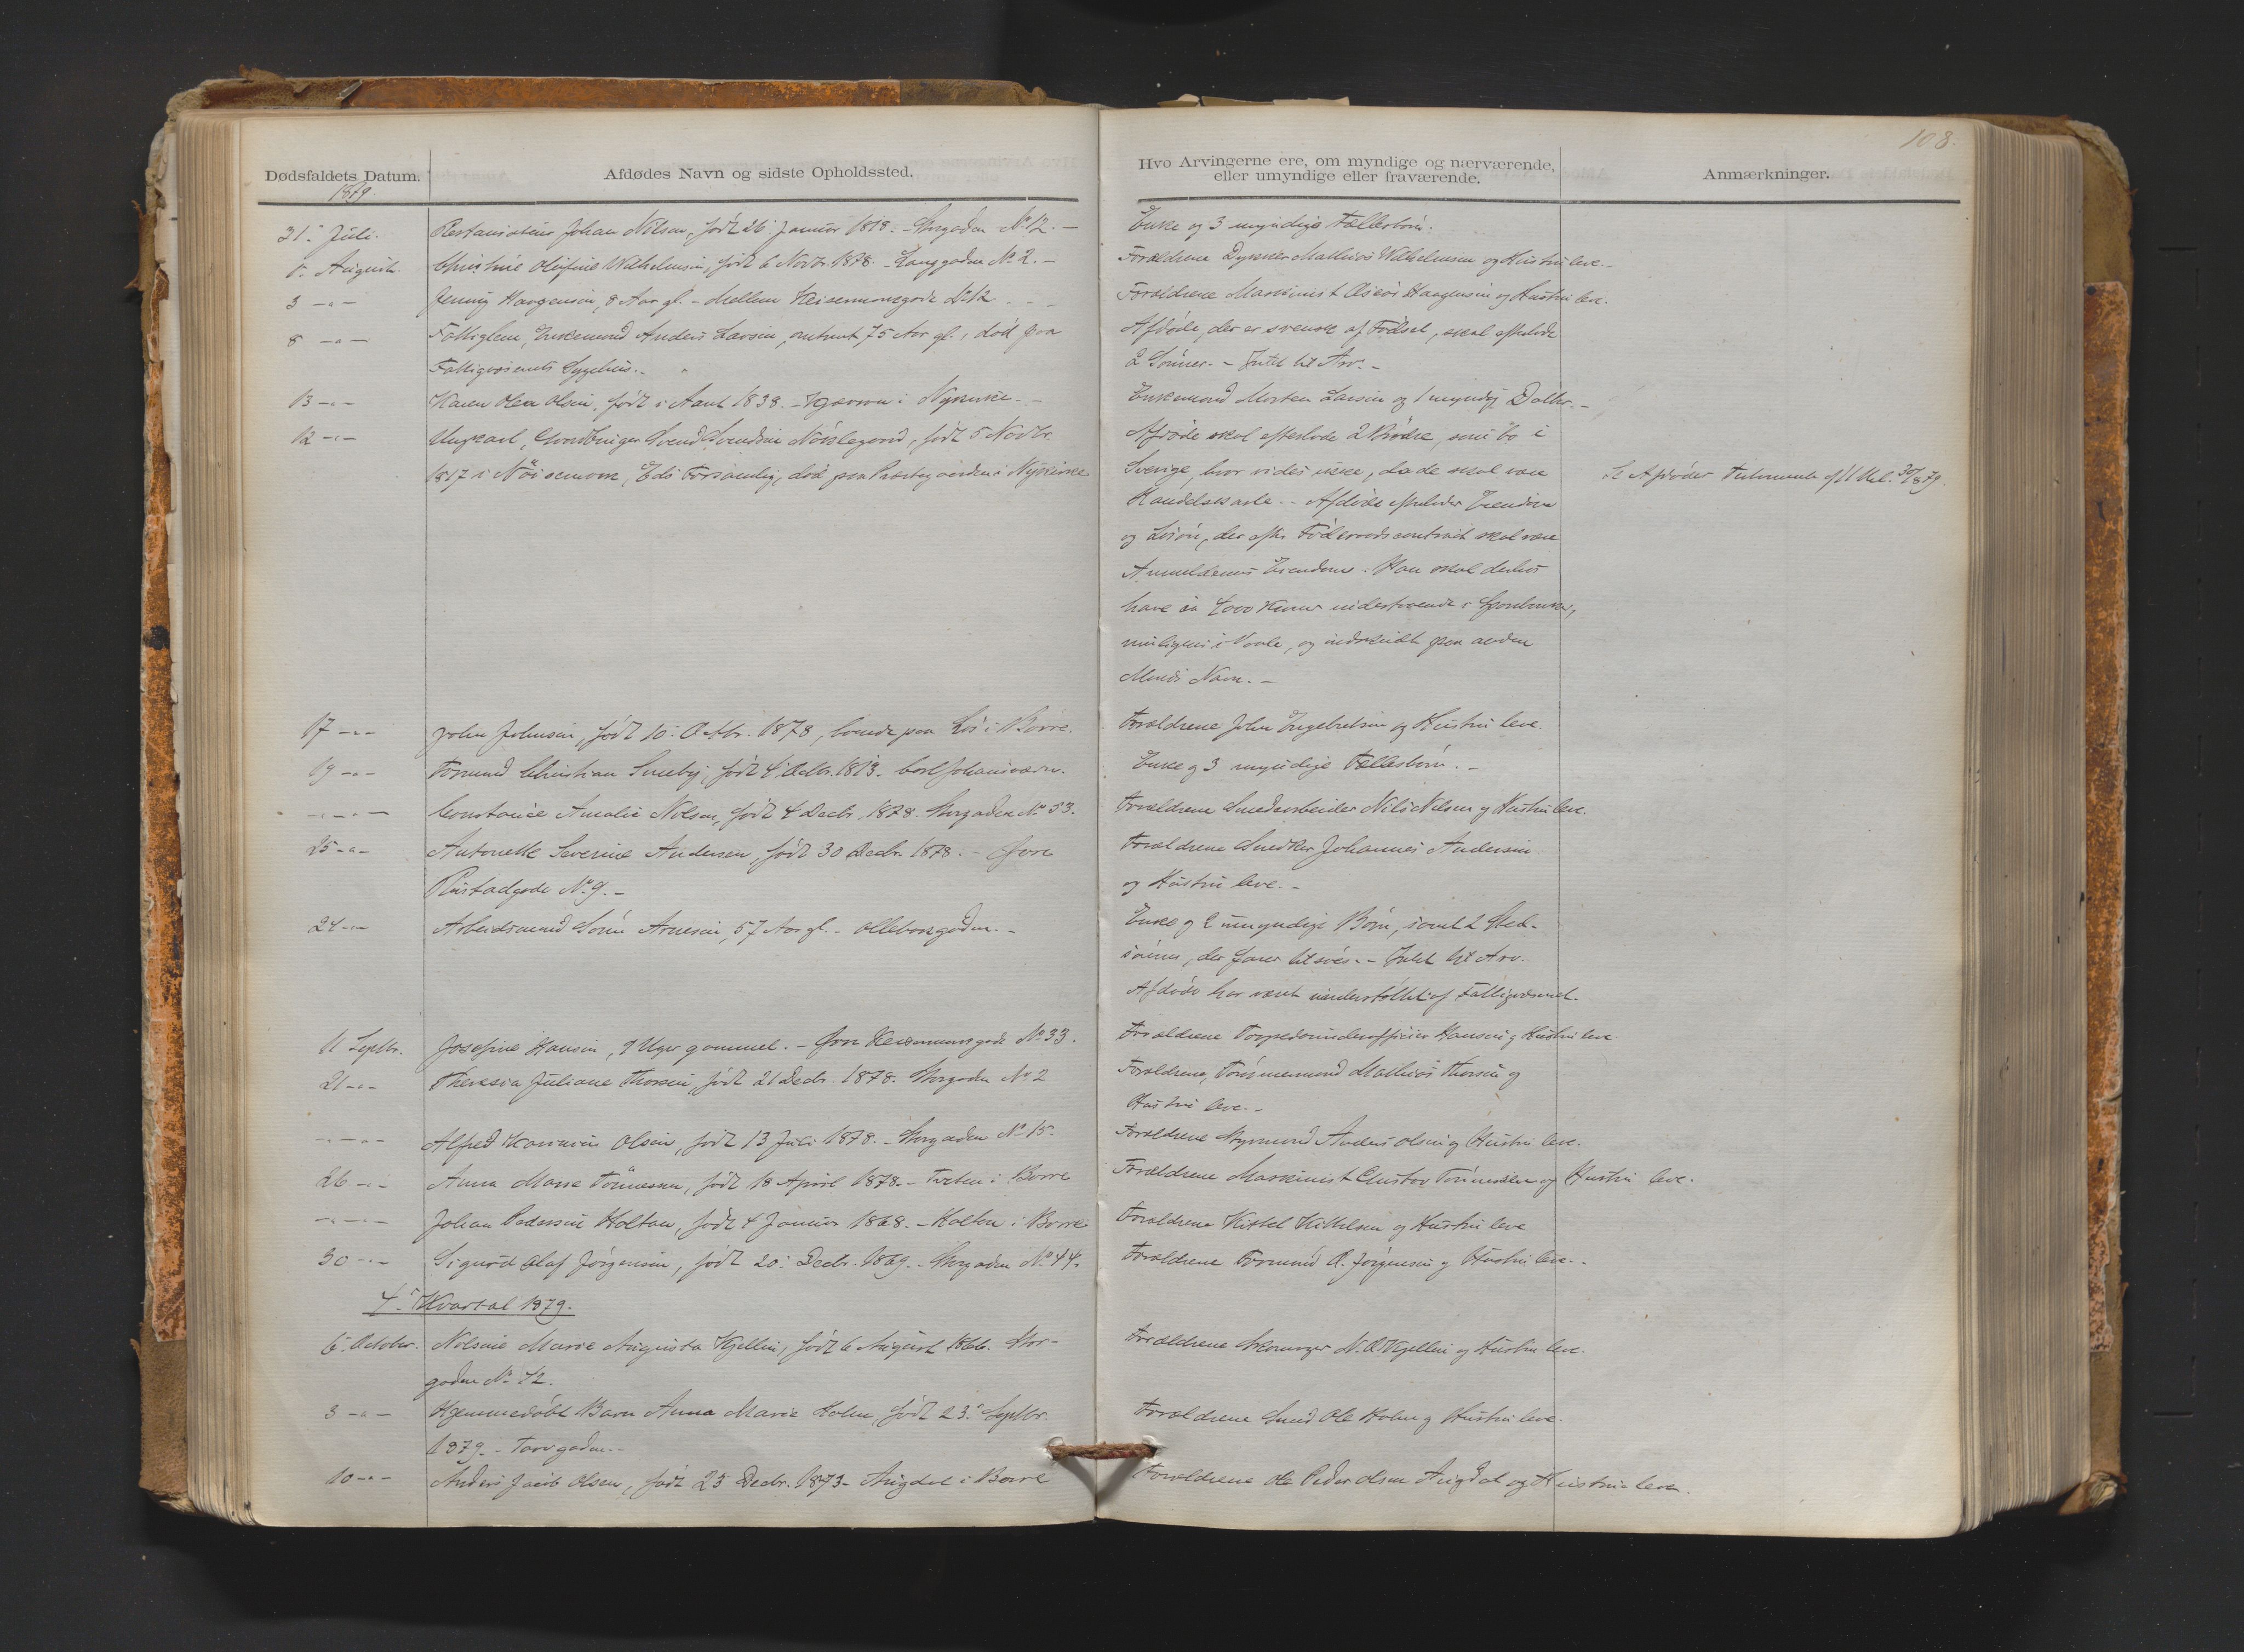 108.
Dødsfaldets Datum.
1879.
Afdødes Navn og sidste Opholdssted.
Hvo Arvingerne ere, om myndige og nærværende,
eller umyndige eller fraværende.
Anmærkninger.
31. Juli. Restauratør Johan Nilsen, født 26 Januar 1818. - Storgaden No 12. -
Enke og 3 myndige Fællesbørn.
1. August. Christine Olufine Wilhelmsen, født 6 Novbr. 1878. - Langgaden No 2. -
Forældrene Dykker Mathias Wilhelmsen og Hustru leve. -
3 -"- Jenny Haagensen, 8 Aar gl. - Mellem Keisemarksgade No 12.
Forældrene Maskinist Haagensen og Hustru leve.
8 -"- Fattiglem, Enkemand Anders Larsen, omtrent 75 Aar gl., død paa
Afdøde, der er svensk af Fødsel, skal efterlade
Fattigvæsenets Sygehus. -
2 Sønner. - Intet til Arv. -
13 -"- Karen Olea Olsen, født i Aaret 1838. - i Nykirke. -
Enkemand Morten Larsen og 1 myndig Datter. -
12 -"- Ungkarl, Svend Svendsen, født 5 Novbr.
Afdøde skal efterlade 2 Brødre, som bo i
1817 i, Eds Forsamling, død paa Præstegaarden i Nykirke
Sverige, hvor vides ikke, da de skal være
Afdødes Testamente af 30/8 79.
Handelskarle. - Afdøde efterlader Eiendom
og Løsøre, der efter Føderaadscontract skal være
Anmelderens Eiendom. Han skal derhos
have ca 4000 Kroner indestaaende i Sparebanker,
muligens i Vaale, og indskudt paa anden
Mands Navn. -
17 -"- John Johnsen, født 10. Octbr. 1878, boende paa i Borre.
Forældrene John Engebretsen og Hustru leve.
19 -"- Formand Christian Smeby, født 4 Octbr. 1813.
Enke og 3 myndige Fællesbørn. -
-"-"- Constance Amalie Nilsen, født 4 Decbr. 1878. Storgaden No 53.
Forældrene Smedearbeider Nils Nilsen og Hustru leve.
25 -"- Antonette Severine Andersen, født 30 Decbr. 1878. - Øvre
Forældrene Snedker Johannes Andersen
Rustadgade No 9. -
og Hustru leve. -
24 -"- Arbeidsmand Sørn Arnesen, 57 Aar gl. -
Enke og 2 umyndige Børn, samt 2 Sted-
sønner, der farer tilsøes. - Intet til Arv.
Afdøde har været understøttet af Fattigvæsenet.
11 Septbr. Josefine Hansen, 9 Uger gammel. - Øvre Keisemarksgade No 33.
Forældrene Torpedounderofficier Hansen og Hustru leve.
21 -"- Theresia Juliane Thorsen, født 21 Decbr. 1878. Storgaden No 2
Forældrene, Tømmermand Mathias Thorsen og
Hustru leve. -
-"-"- Alfred Olsen, født 13 Juli 1878. - Storgaden No 15.
Forældrene Styrmand Anders Olsen og Hustru leve.
26 -"- Anna Marie Tönnesen, født 18 April 1878. - Tveten i Borre
Forældrene Maskinist Gustav Tønnesen og Hustru leve.
-"-"- Johan Pedersen Holtan, født 4 Januar 1868. - Holtan i Borre
Forældrene Kittel Kittelsen og Hustru leve
30 -"- Sigurd Olaf Jørgensen, født 20. Decbr. 1869. - Storgaden No 44.
Forældrene Formand O. Jørgensen og Hustru leve. -
4. Kvartal 1879.
6. October. Nilsine Marie Augusta Kjellin, født 6 August 1866. Stor-
Forældrene Skomager N. O. Kjellin og Hustru leve.
gaden No 72.
3 -"- Hjemmedøbt Barn Anna Marie Holm, født 23. Septbr.
Forældrene Smed Ole Holm og Hustru leve.
1879. - Torvgaden. -
10 -"- Anders Jacob Olsen, født 23 Decbr. 1873 - Augdal i Borre
Forældrene Ole Peder Olsen Augdal og Hustru leve.